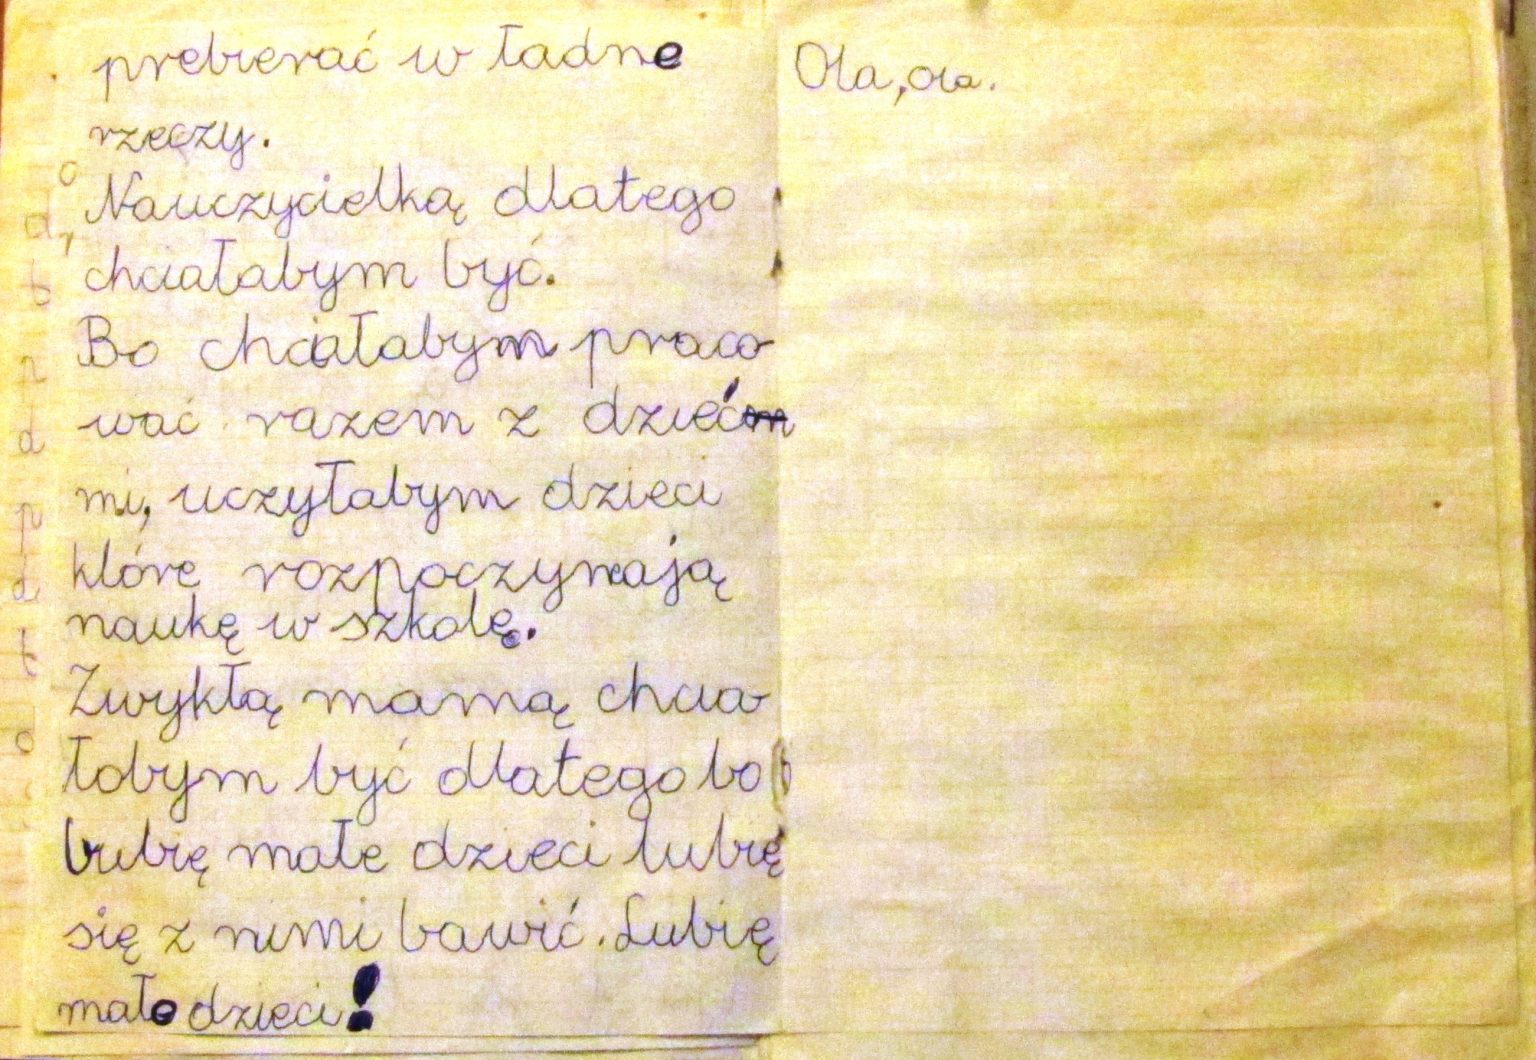 prebierać w ładne
rzeczy.
Nauczycielką dlatego
chciałabym być.
Bo chciałabym praco
wać razem z dzieć
mi, uczyłabym dzieci
które rozpoczynają
naukę w szkolę.
Zwykłą mamą chcia
łobym być dlatego bo
lubię małe dzieci lubię
się z nimi bawić. Lubię
małe dzieci!
Ola, ola.